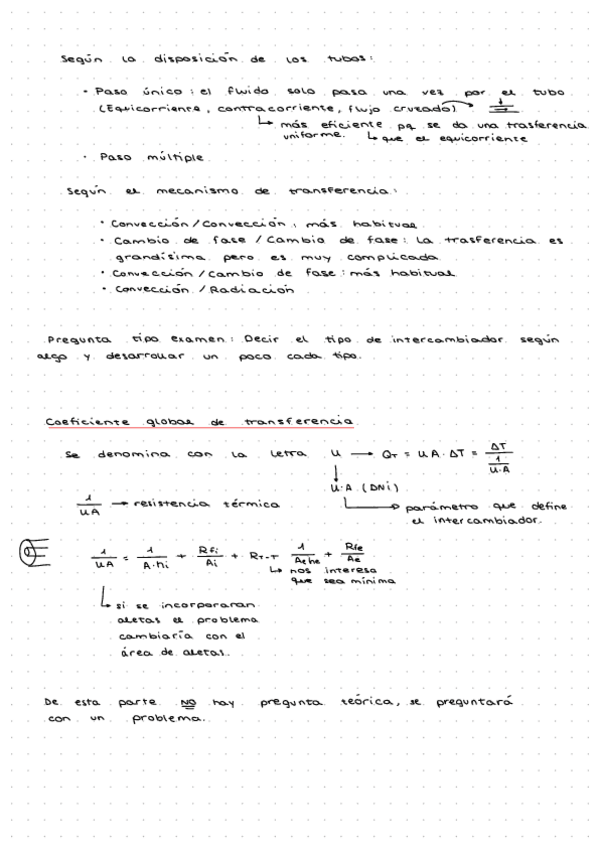 Según la disposición de los tubos:
· Paso único: el fluido solo pasa una vez por el tubo
(Equicorriente, contracorriente, flujo cruzado)
↳ más eficiente pq se da una trasferencia
uniforme. ↳ que el equicorriente
· Paso múltiple
Según el mecanismo de transferencia:
· Convección / Convección, más habitual
· Cambio de fase / Cambio de fase: la trasferencia es
grandísima pero es muy complicada
· Convección / cambio de fase: más habitual
· Convección / Radiación
Pregunta tipo examen: Decir el tipo de intercambiador según
algo y desarrollar un poco cada tipo.
Coeficiente global de transferencia
Se denomina con la letra U → Q_T = UA·ΔT = ΔT / (1/(U·A))
U·A (DNI)
1/(UA) → resistencia térmica
parámetro que define
el intercambiador.
1/(UA) = 1/(A·hi) + Rfi/Ai + R_T-T 1/(Aehe) + Rfe/Ae
↳ nos interesa
que sea mínima
↳ si se incorporaran
aletas el problema
cambiaría con el
área de aletas.
De esta parte NO hay pregunta teórica, se preguntará
con un problema.